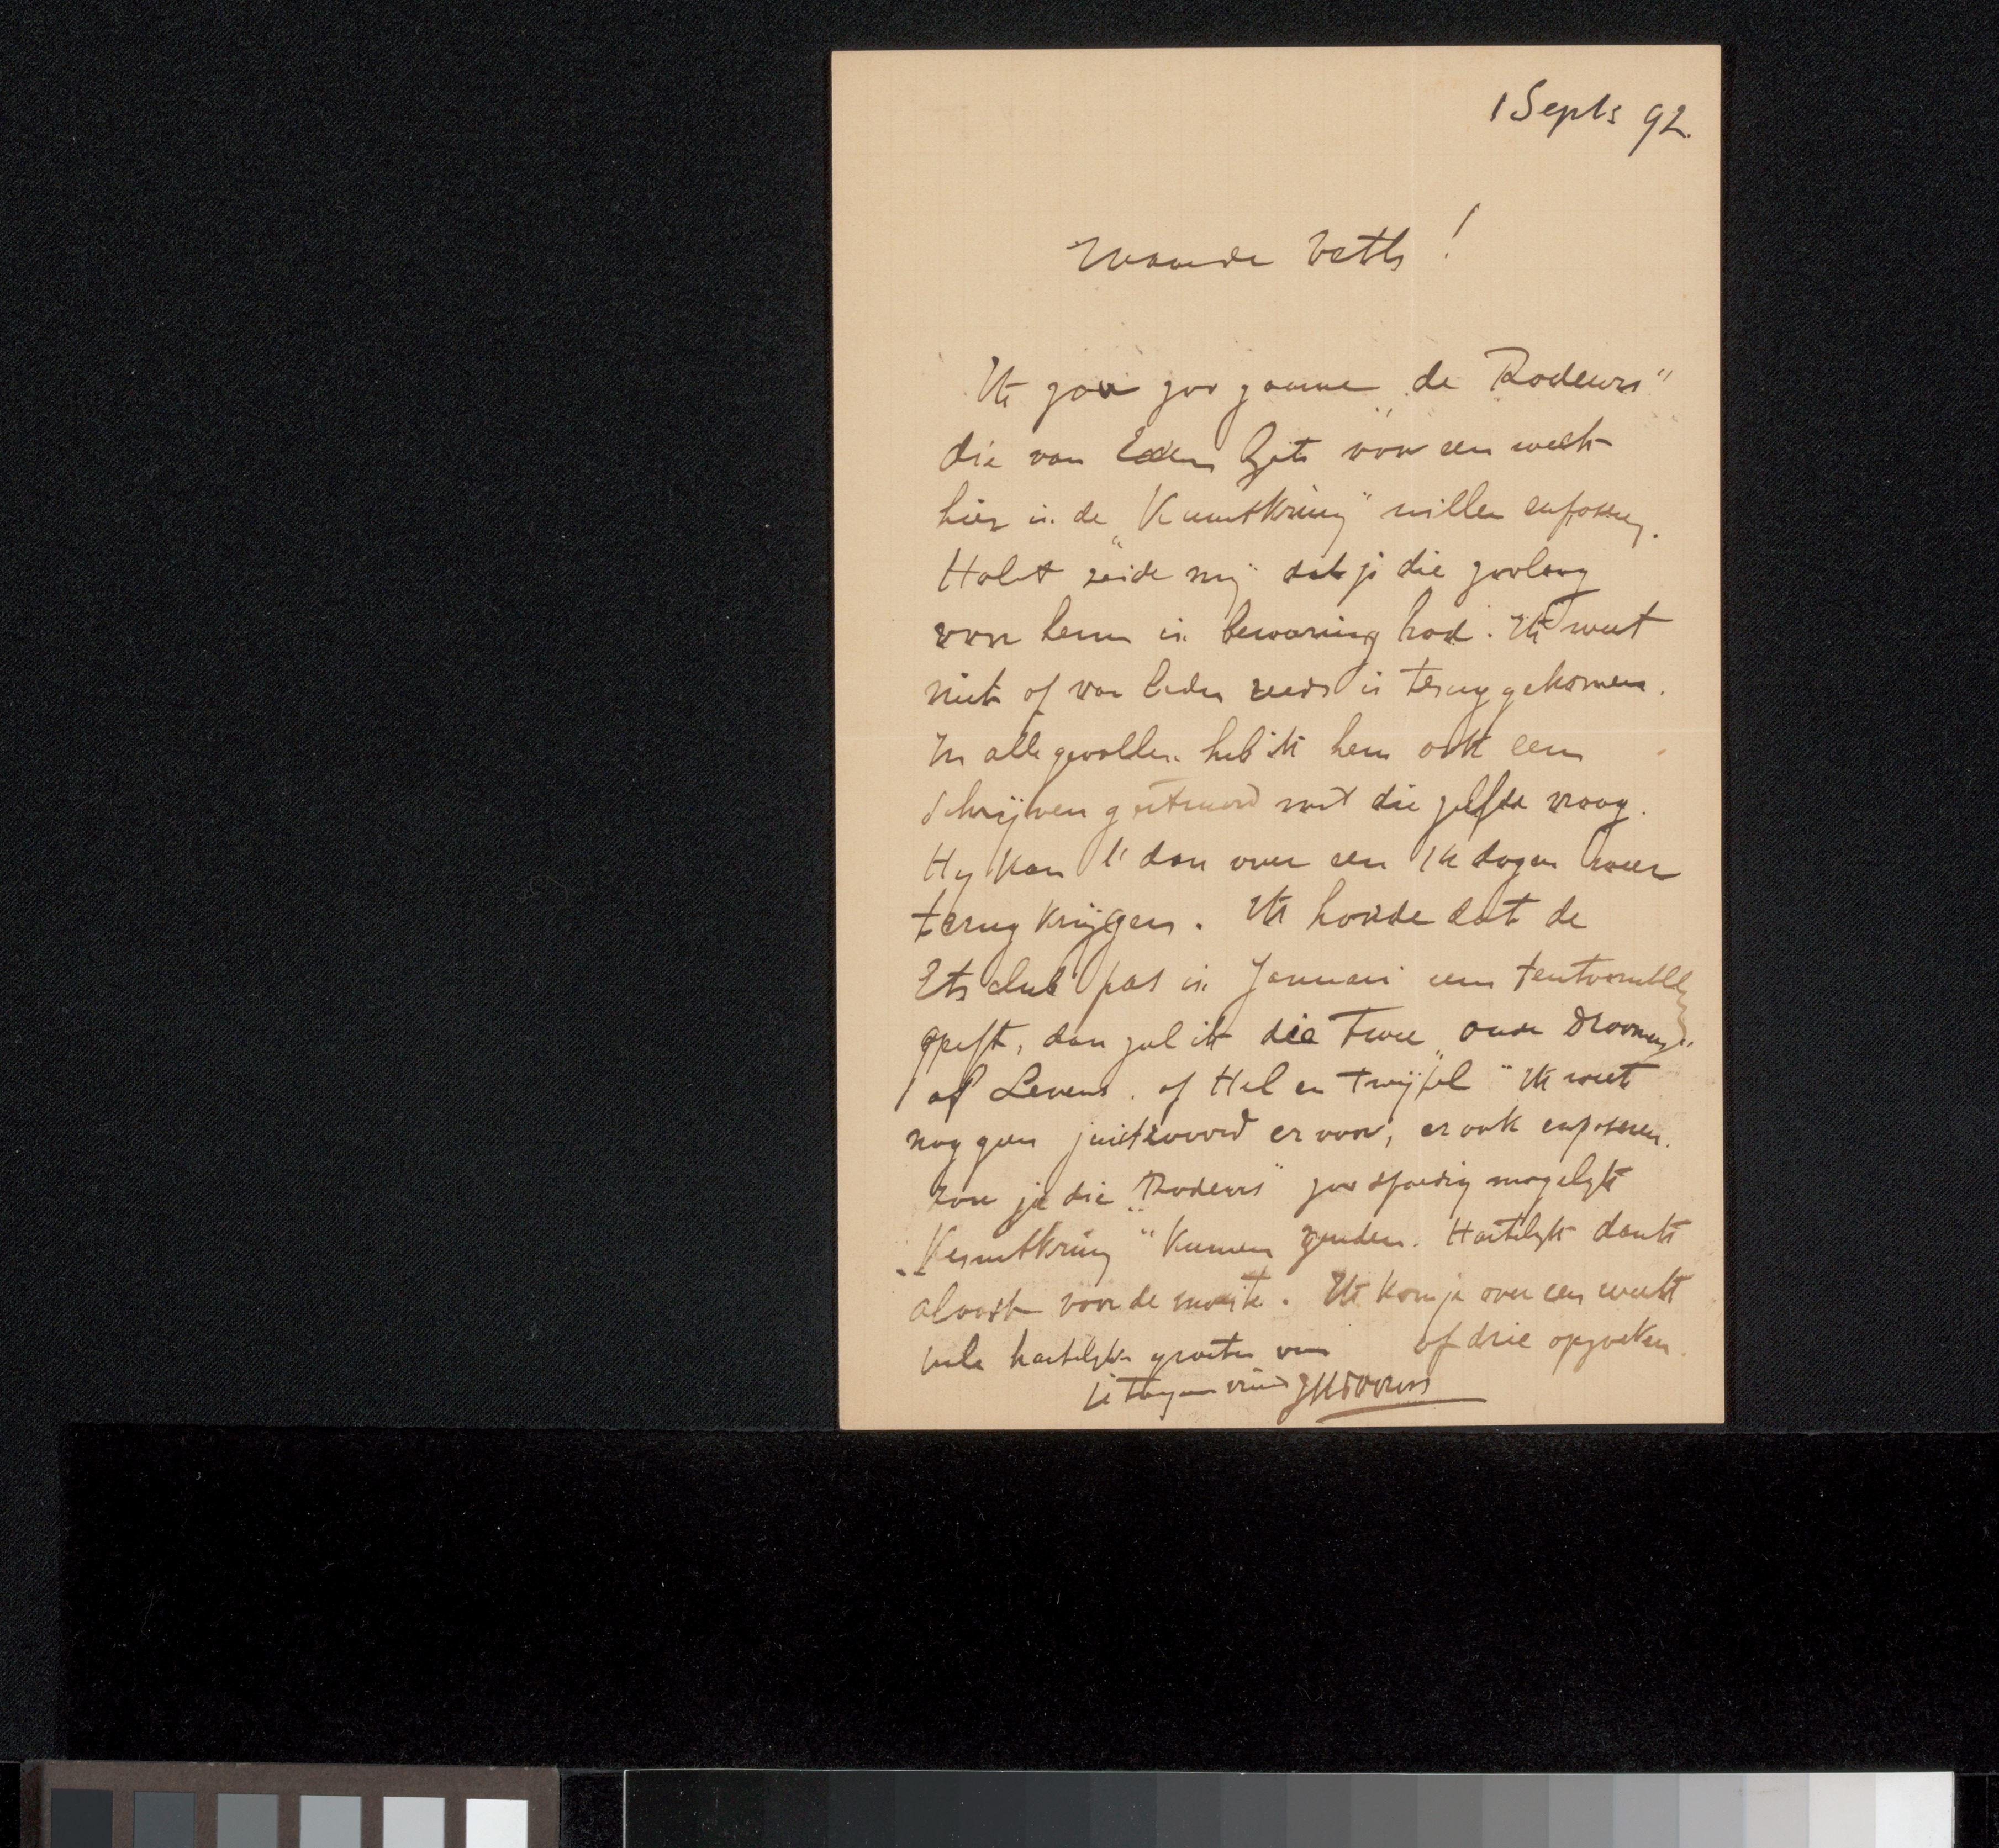 1 Septs 92.
Waarde Veth!
Ik zou zoo gaarne „de Rodeurs"
die van Eeden bezit voor een week
hier in de „Kunstkring" willen exposeeren.
Holst zeide mij dat je die zoolang
voor hem in bewaring had. Ik weet
niet of van Eeden reeds is teruggekomen.
In alle gevallen heb ik hem ook een
schrijven gestuurd met die zelfde vraag.
Hy kan 't dan over een 14 dagen weer
terug krijgen. Ik hoorde dat de
Etsclub pas in Januari een tentoonstelling
geeft, dan zal ik die twee „oude Droomers"
of Levens. of Hel en Twijfel" Ik weet
nog geen juist woord er voor, er ook exposeeren.
Zou je die „Rodeurs" zoo spoedig mogelyk
„Kunstkring" kunnen zenden. Hartelyk dank
alvast voor de moeite. Ik kom je over een week
of drie opzoeken.
vele hartelyke groeten van
je toegen vriend JThToorop